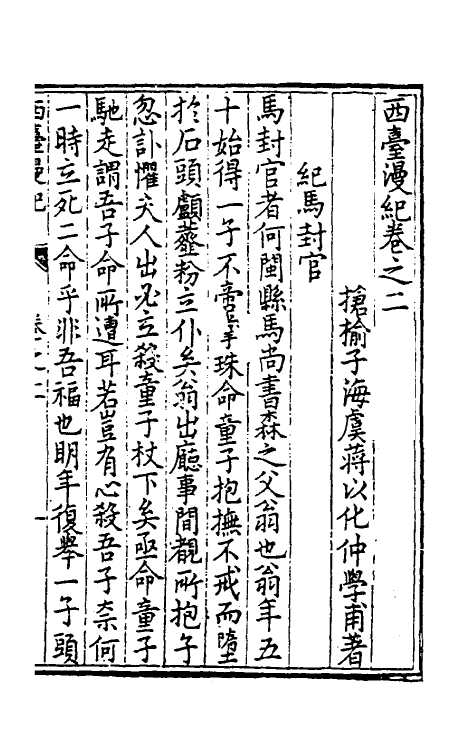 西臺漫紀卷之二
搶榆子海虞蔣以化仲學甫著
紀馬封官
馬封官者何閩縣馬尚書森之父翁也翁年五
十始得一子不啻掌珠命童子抱撫不戒而墮
於石頭顱虀粉立仆矣翁出廳事間覩所抱子
忽訃懼夫人出必立殺童子杖下矣亟命童子
馳走謂吾子命所遭耳若豈有心殺吾子奈何
一時立死二命乎非吾福也明年復舉一子頭
西臺漫紀
卷之二
一